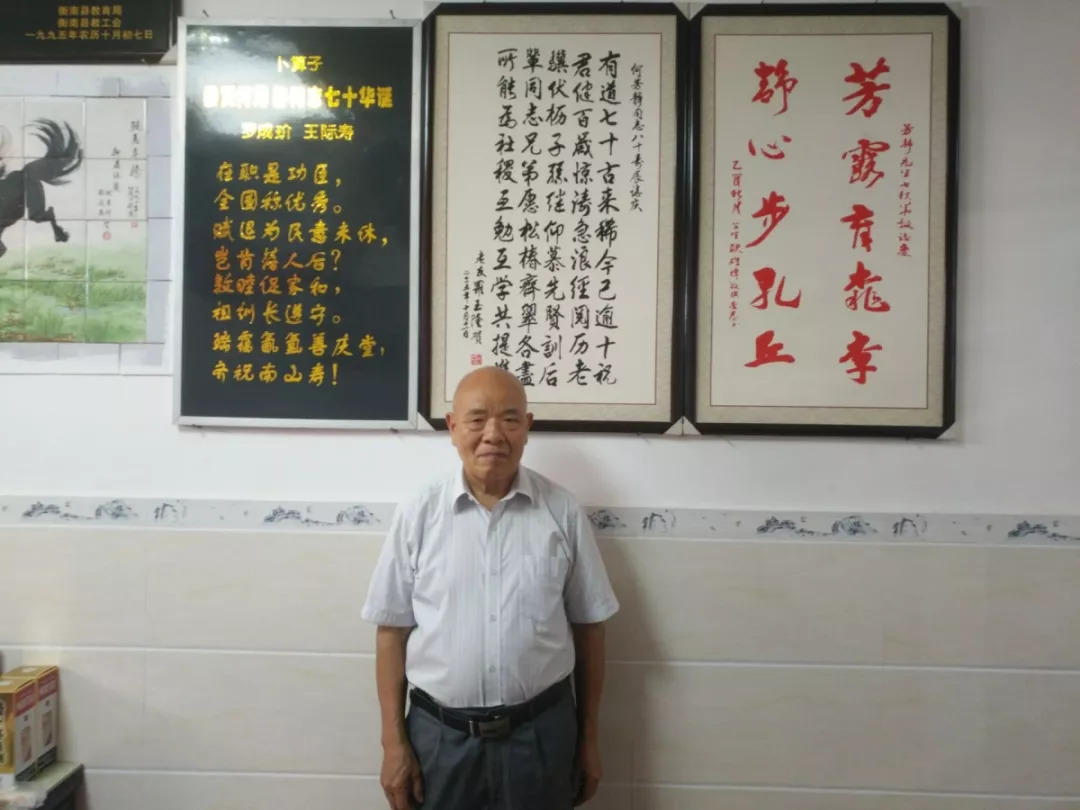 衡南县教育局
衡南县教工会
一九九五年农历十月初七日
卜算子
七十华诞
罗成玠 王际寿
在职是功臣，
全国称优秀。
退为民意未休，
岂肯落人后？
敦睦促家和，
祖训长遵守。
瑞霭氤氲善庆堂，
齐祝南山寿！
何芳静同志八十寿辰志庆
有道七十古来稀今已逾十祝
君健百岁惊涛急浪经阅历老
骥伏枥子孙继仰慕先贤训后
辈同志兄弟愿松椿齐翠各尽
所能为社稷互勉互学共提
老友 玉隆贺
芳静先生七秩华诞志庆
芳露育桃李
静心步孔丘
乙酉秋月